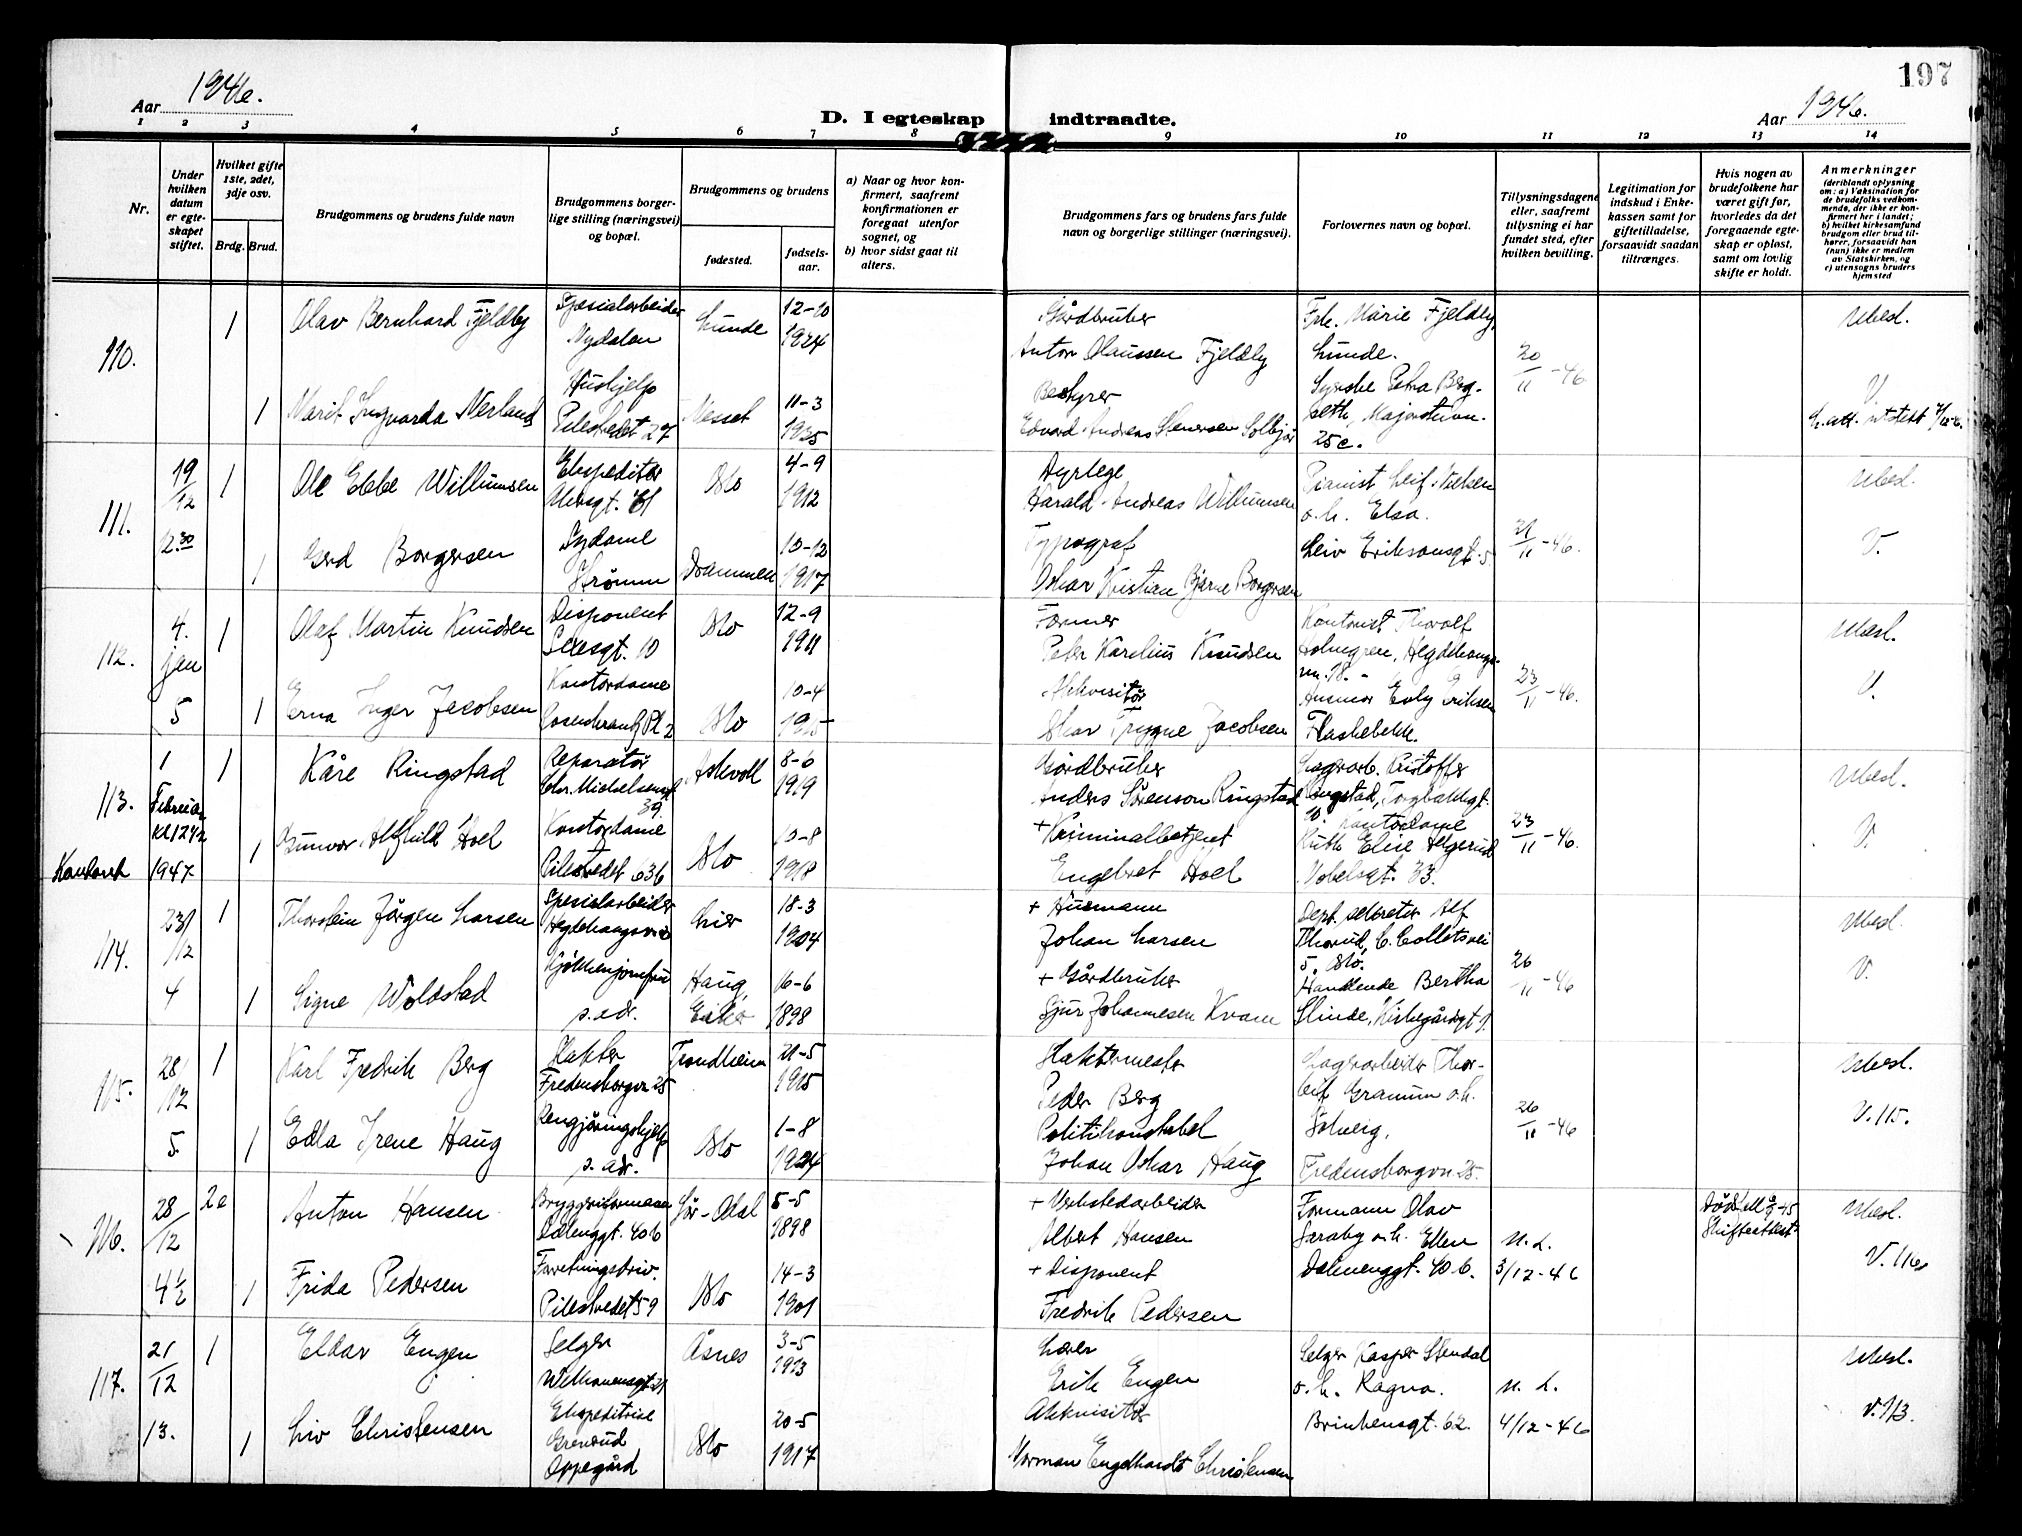 197
Aar 1946.
D. I egteskap indtraadte.
Aar 1946.
1 2 3 4 5 6 7 8 9 10 11 12 13 14
Nr.
Under hvilken datum er egteskapet stiftet.
Hvilket gifte 1ste, 2det, 3dje osv.
Brdg. Brud.
Brudgommens og brudens fulde navn
Brudgommens borgerlige stilling (næringsvei) og bopæl.
Brudgommens og brudens
fødested.
fødselsaar.
a) Naar og hvor konfirmert, saafremt konfirmationen er foregaat utenfor sognet, og
b) hvor sidst gaat til alters.
Brudgommens fars og brudens fars fulde navn og borgerlige stillinger (næringsvei).
Forlovernes navn og bopæl.
Tillysningsdagene eller, saafremt tillysning ei har fundet sted, efter hvilken bevilling.
Legitimation for indskud i Enkekassen samt for giftetilladelse, forsaavidt saadan tiltrænges.
Hvis nogen av brudefolkene har været gift før, hvorledes da det foregaaende egteskap er opløst, samt om lovlig skifte er holdt.
Anmerkninger
(deriblandt oplysning om: a) Vaksination for de brudefolks vedkommende, der ikke er konfirmert her i landet; b) hvilket kirkesamfund brudgom eller brud tilhører, forsaavidt han (hun) ikke er medlem av Statskirken, og c) utensogns bruders hjemsted
110.
1 Olav Bernhard Fjeldby
Spesialarbeider Nydalen
Lunde
12-10 1924
Gårdbruker
Anton Olaussen Fjeldby
Frk. Marie Fjeldby,
Lunde.
20/11-46
Ubesl.
1 Marit Ingvarda Nerland
Hushjelp
Pilestredet 27
Nesset
11-3 1925
Bestyrer
Edvard Andreas Stenersen Solbjør
Petra
Majorstuvn.
25c.
V.
111.
19/12
2.30
1 Ole Ebbe Willumsen
Ekspeditør
Akersgt. 61
Oslo
4-9 1912
Dyrlege
Harald Andreas Willumsen
Pianist Leif Nielsen
o.h. Elsa.
Leiv Eriksonsgt. 5
21/11-46.
Ubesl.
1 Gerd Borgersen
Sydame
Strømm
Drammen
10-12 1917
Typograf
Oskar Kristian Bjarne Borgersen
V.
112.
4. jan
5
1 Olaf Martin Knudsen
Disponent
10
Oslo
12-9 1911
Former
Peter Karelius Knudsen
Kontorist Thoralf
Holmgren, Hegdehaugsvn. 18.
23/11-46.
Ubesl.
1 Erna Inger Jacobsen
Kontordame
Rosenkrantz Pl. 2
Oslo
10-4 1915
Akkvisitør
Oskar Trygve Jacobsen
Gunnor Evly Eriksen
Flaskebekk.
V.
113.
Kontoret
1 Februar
kl 12 1/2
1947
1 Kåre Ringstad
Reparatør
Chr. Michelsensgt. 39.
Askvoll
8-6 1919
Gårdbruker
Anders Sørenson Ringstad
Lagerarb. Kristoffer
Ringstad, Torgbakkgt.
10.
23/11-46.
Ubesl.
1 Gunvor Alfhild Hoel
Kontordame
Pilestredet 63b
Oslo
10-8 1918
+ Kriminalbetjent
Engebret Hoel
Kontordame
Ruth Elise Helgerud
Nobelsgt. 33.
V.
114.
23/12
4
1 Thorstein Jørgen Larsen
Spesialarbeider
Lier
18-3 1904
+ Husmann
Johan Larsen
Dept. sekretær Alf
Thorud, C. Colletsvei
5. Oslo.
26/11-46
Ubesl.
1 Signe Woldstad
Kjøkkenjomfru
s. adr.
Haug,
Eiker
16-6 1898
+ Gårdbruker
Sjur Johannesen Kvam
Handlende Bertha
Slinde, Kirkegårdsgt 1.
V.
115.
28/12
5.
1 Karl Fredrik Berg
Slakter
Fredensborgvn 25
Trondheim
21-5 1915
Slaktermester
Peder Berg
Lagerarbeider Thorleif Granum o.h.
Solveig,
Fredensborgvn. 25.
26/11-46
Ubesl.
1 Edla Irene Haug
Rengjøringshjelp
s. adr.
Oslo
1-8 1924
Politikonstabel
Johan Oskar Haug
V. 115.
116.
28/12
4 1/2
2e Anton Hansen
Dælenggt. 40b
Sør-Odal
5-5 1898
+ Verkstedarbeider
Albert Hansen
Formann Olav
o.h. Ellen
Dælenenggt. 40b.
n. L.
3/12-46
Skifteattest
Ubesl.
1 Frida Pedersen
Forretningsdriv.
Pilestredet 59
Oslo
14-3 1901
+ Disponent
Fredrik Pedersen
V. 116
117.
21/12
13.
1 Eldar Engen
Selger
Welhavensgt 21
Åsnes
3-5 1913
Lærer
Erik Engen
Selger Kasper Stendal
o.h. Ragna.
Brinkensgt. 62.
n. L.
4/12-46
Ubesl.
1 Liv Christensen
Ekspeditrise
Grenrud
Oppegård
Oslo
20-5 1917
Akkvisitør
Norman Engelhardt Christensen
V. 113.